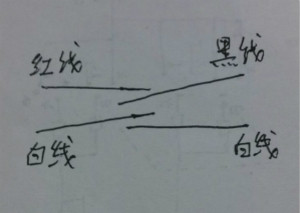 红线
黑线
白线
白线